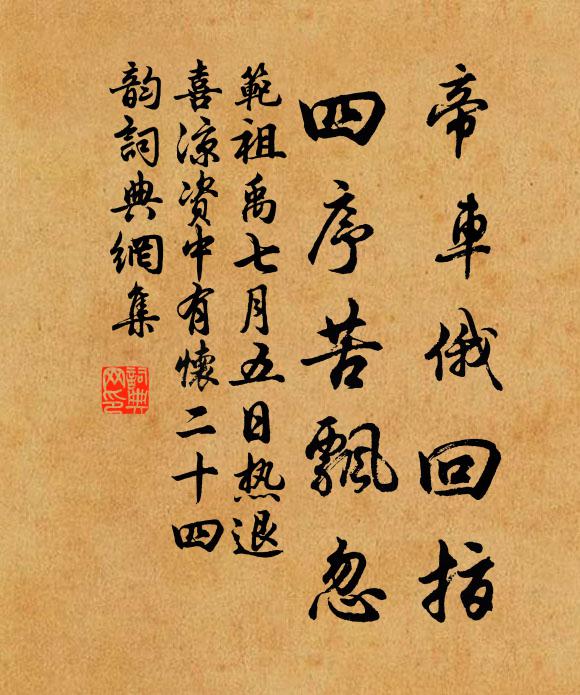 帝車俄回指
四序苦飄忽
範祖禹七月五日热退
喜凉资中有懷二十四
韵詞典網集
詞典网印